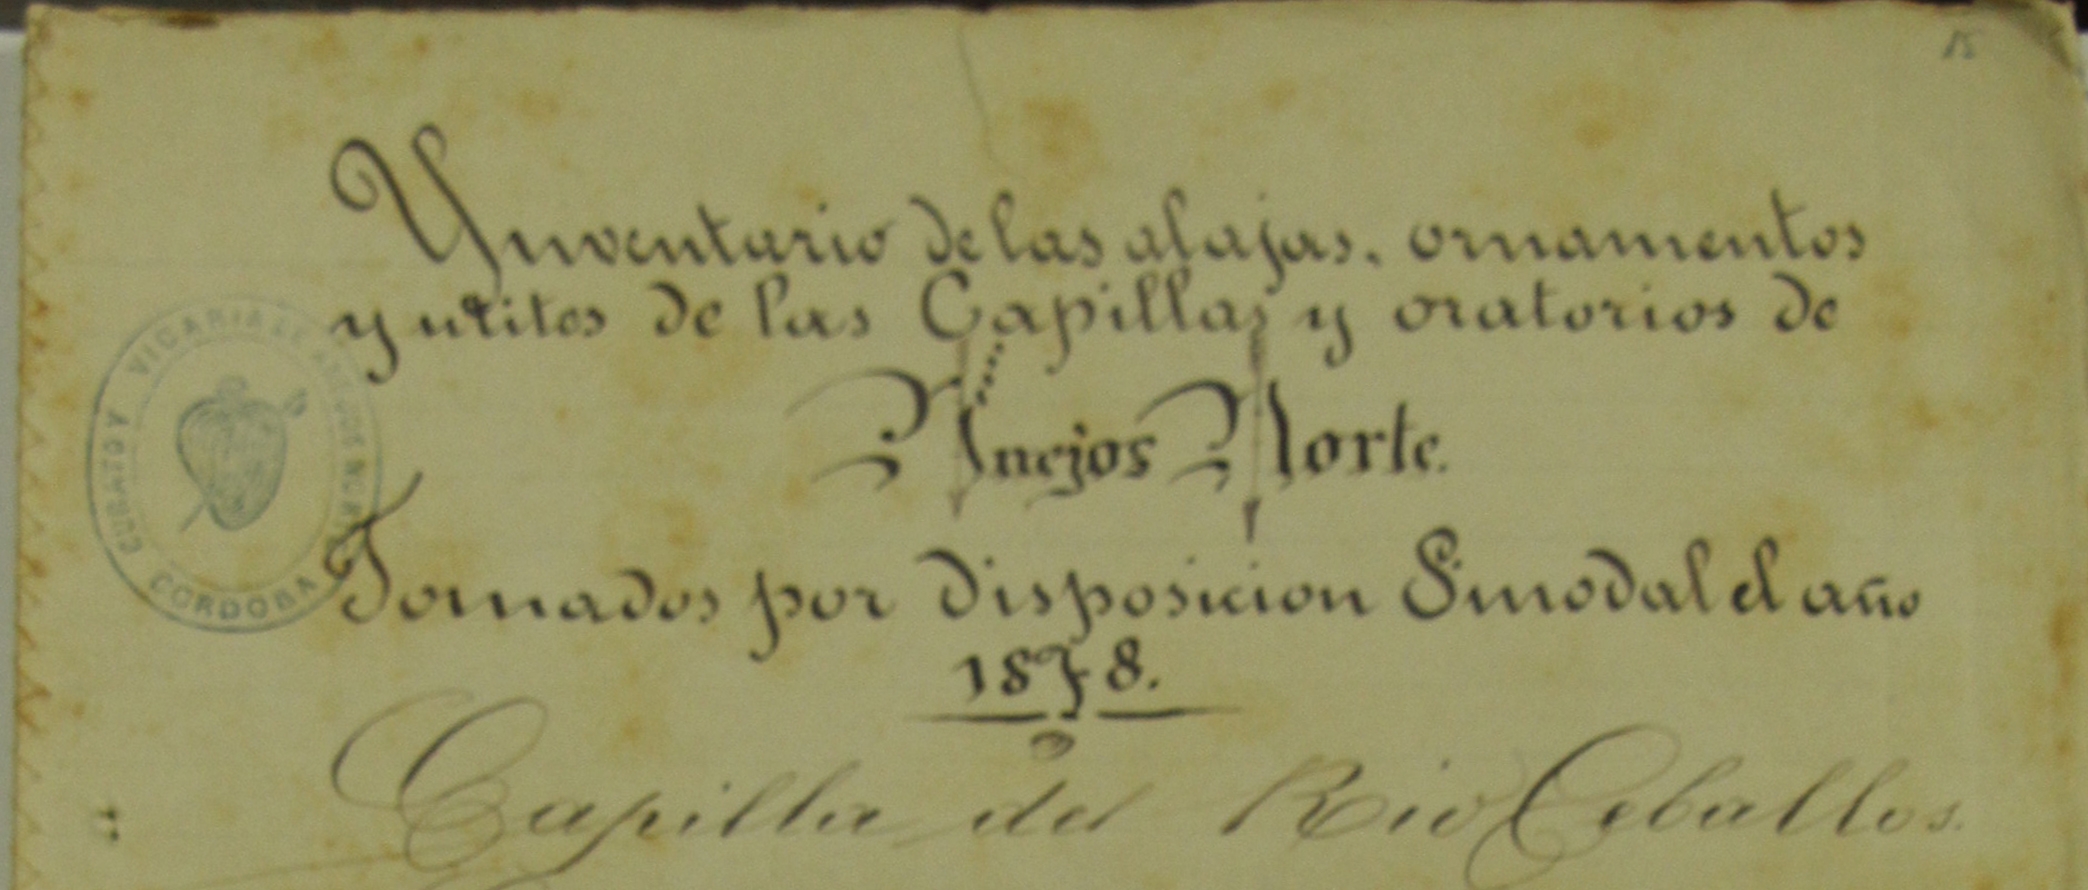 15
Ynventario de las alajas, ornamentos
y utiles de las Capillas y oratorios de
Anejos Norte.
CURATO Y VICARIA DE ANEJOS NORTE
CORDOBA
Tomados por disposicion Sinodal el año
1878.
Capilla del Rio Ceballos.